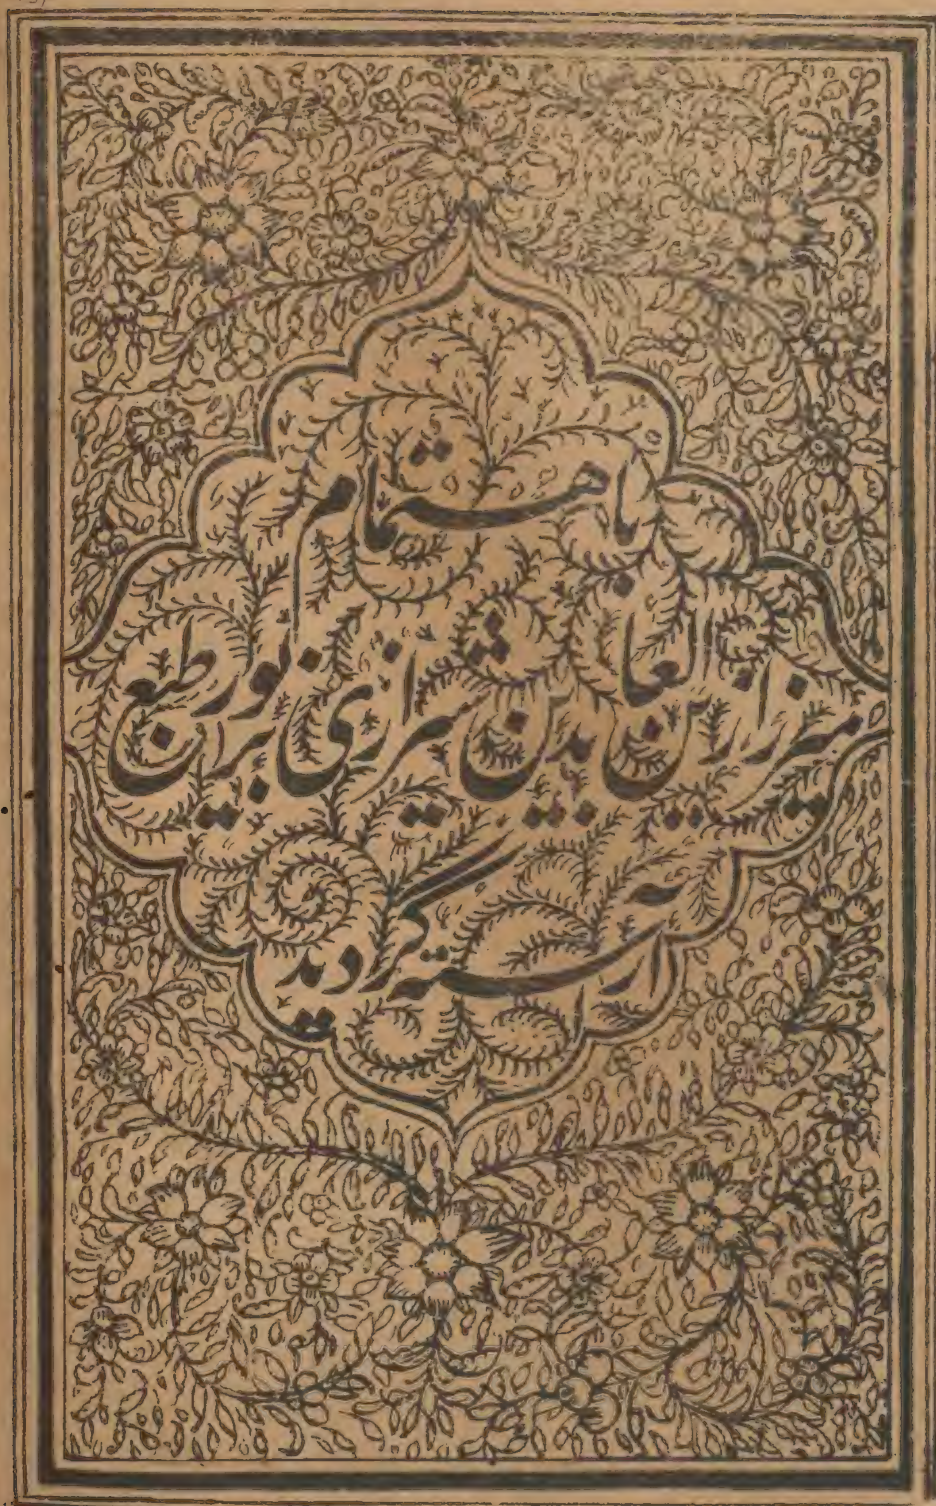 باهتمام
میرزا زین العابدین شیرازی بزیور طبع
آراسته گردید